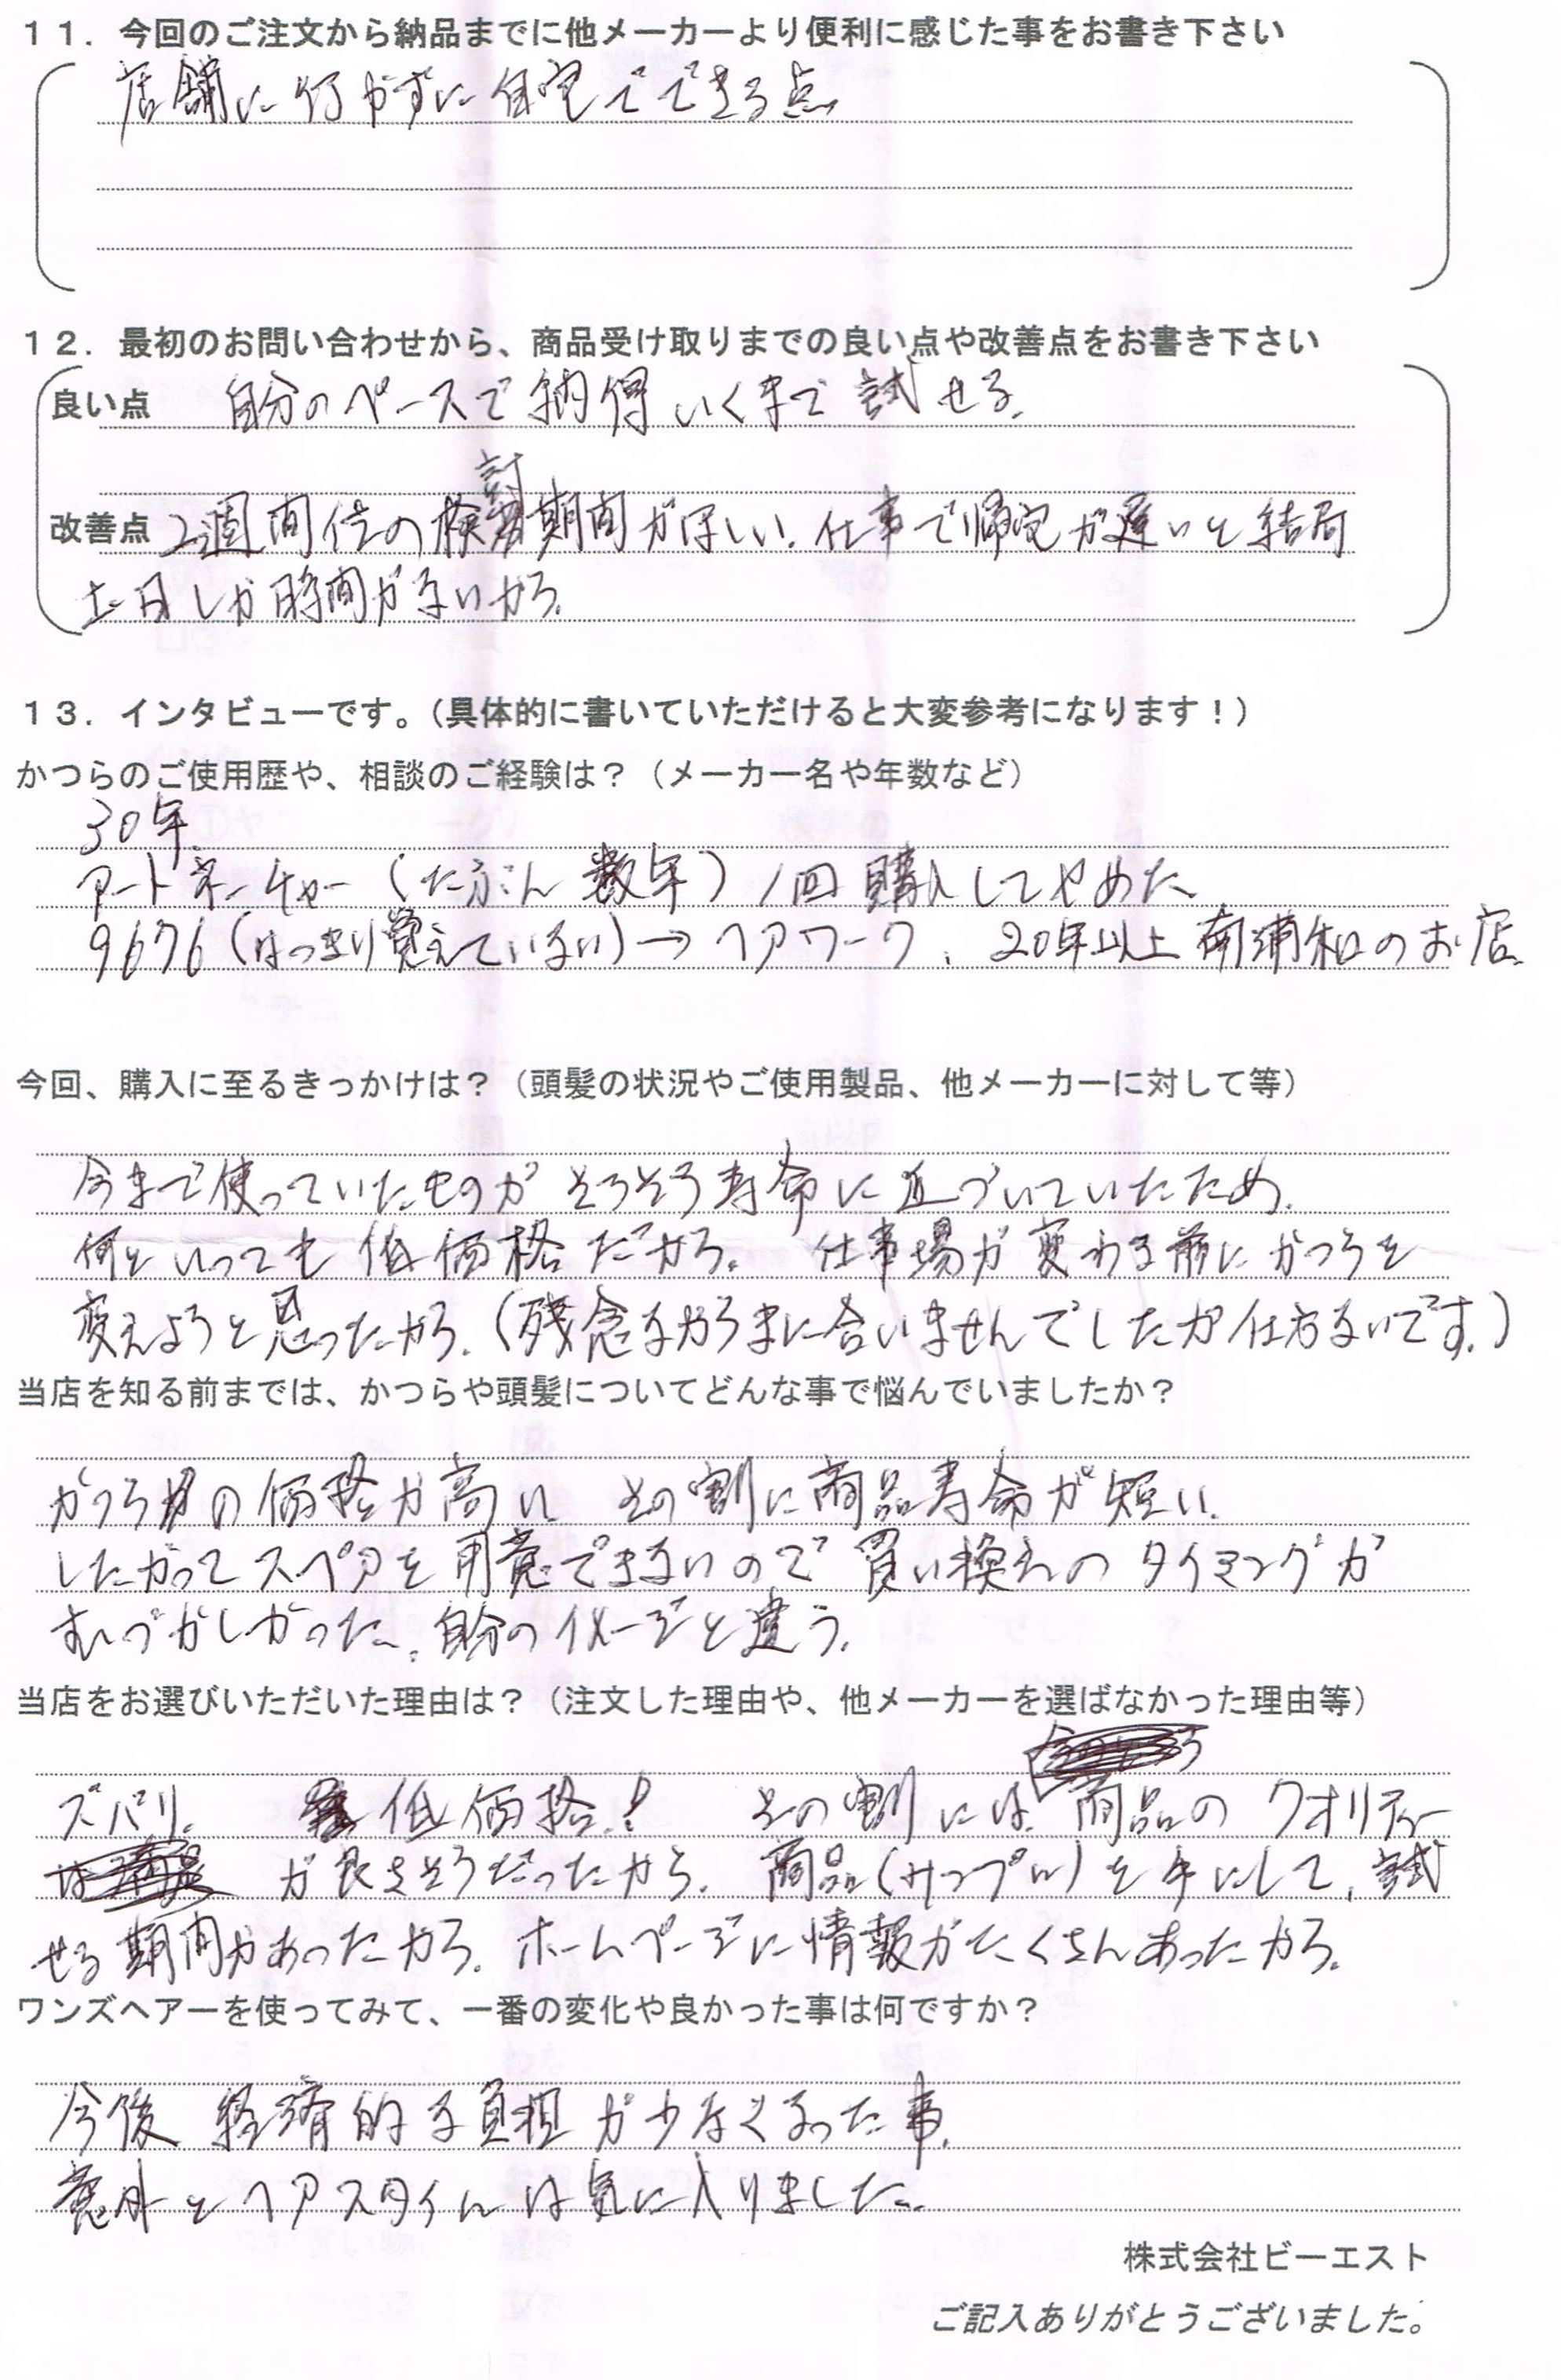 11．今回のご注文から納品までに他メーカーより便利に感じた事をお書き下さい
店舗に行かずに自宅でできる点
12．最初のお問い合わせから、商品受け取りまでの良い点や改善点をお書き下さい
良い点 自分のペースで納得いくまで試せる。
改善点 2週間位の検討期間がほしい。仕事で帰宅が遅いと結局
土日しか時間がないから。
13．インタビューです。（具体的に書いていただけると大変参考になります！）
かつらのご使用歴や、相談のご経験は？（メーカー名や年数など）
30年。
アートネーチャー（たぶん数年）1回購入してやめた
9676（はっきり覚えていない）→ヘアワーク、20年以上南浦和のお店。
今回、購入に至るきっかけは？（頭髪の状況やご使用製品、他メーカーに対して等）
今まで使っていたものがそろそろ寿命に近づいていたため。
何といっても低価格だから。 仕事場が変わる前にかつらを
変えようと思ったから。（残念ながらまに合いませんでしたが仕方ないです。）
当店を知る前までは、かつらや頭髪についてどんな事で悩んでいましたか？
かつらの価格が高い その割に商品寿命が短い。
したがってスペアを用意できないので買い換えのタイミングが
むづかしかった。自分のイメージと違う。
当店をお選びいただいた理由は？（注文した理由や、他メーカーを選ばなかった理由等）
ズバリ。 低価格！ その割には、商品のクオリティー
が良さそうだったから。商品（サンプル）を手にして、試
せる期間があったから。ホームページに情報がたくさんあったから。
ワンズヘアーを使ってみて、一番の変化や良かった事は何ですか？
今後経済的な負担が少なくなった事。
意外とヘアスタイルは気に入りました。
株式会社ビーエスト
ご記入ありがとうございました。